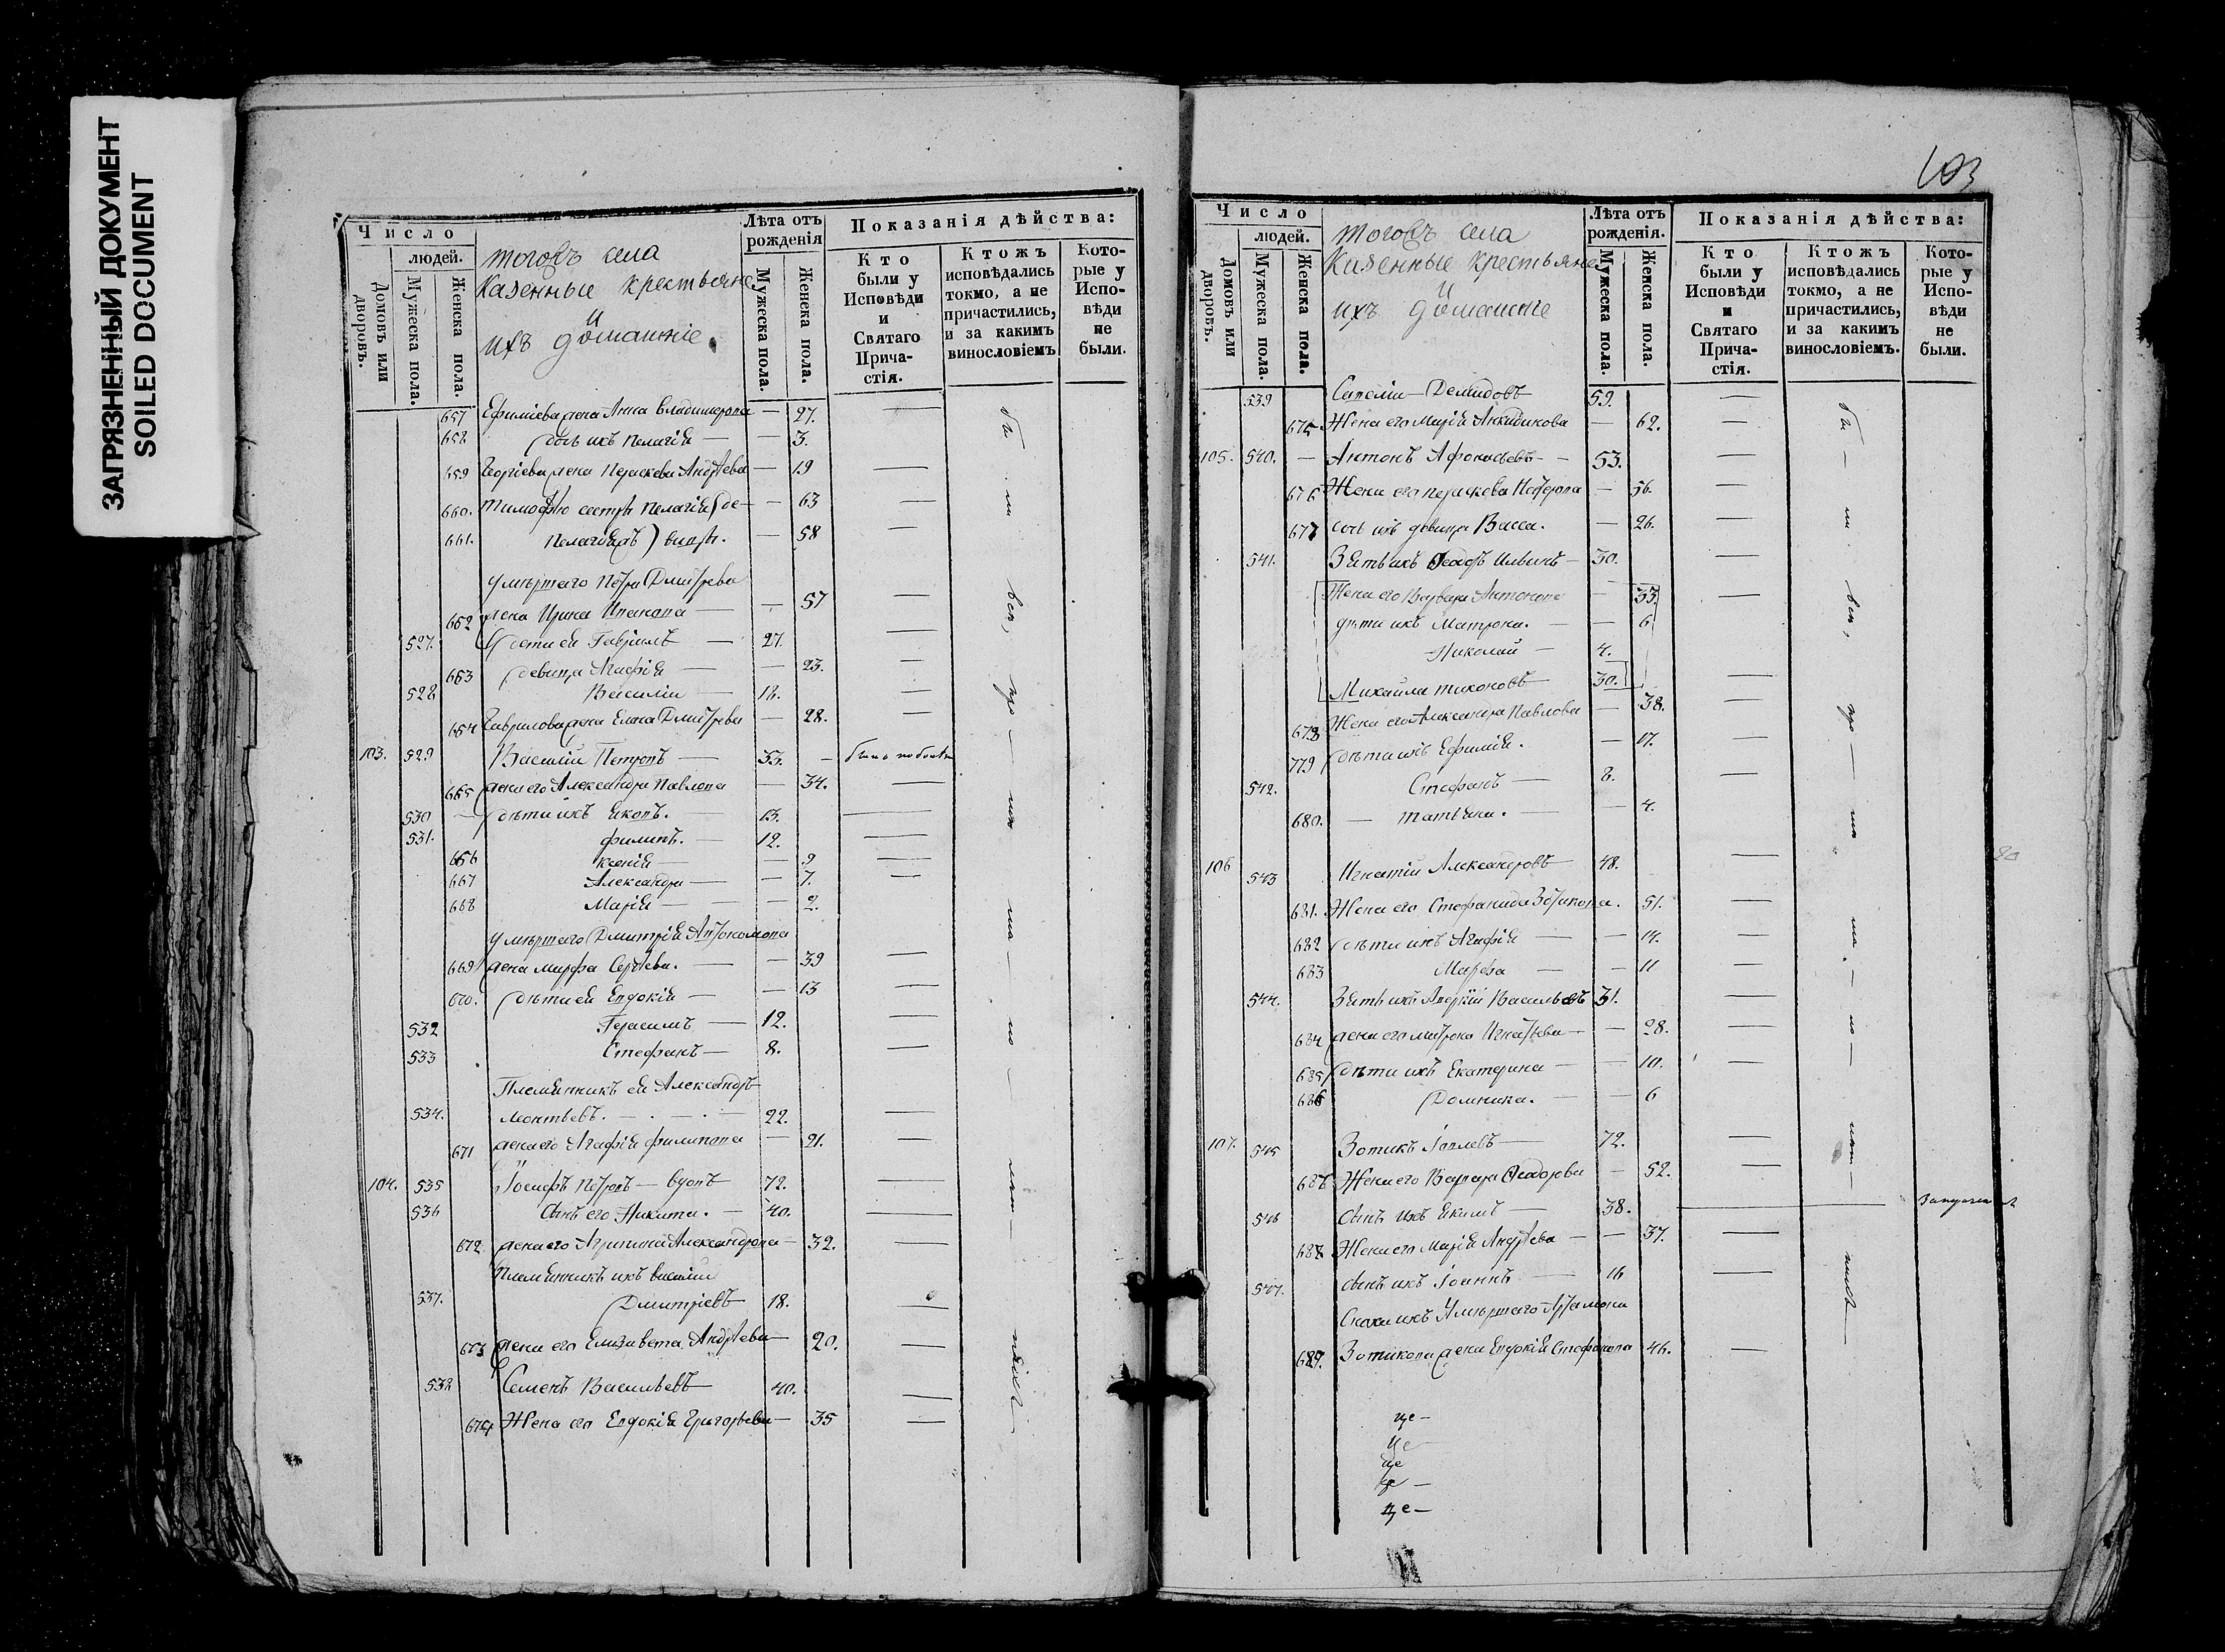 ЗАГРЯЗНЕННЫЙ ДОКУМЕНТ
SOILED DOCUMENT
Число
людей.
Домовъ или дворовъ.
Мужеска пола.
Женска пола.
тогожъ села
Казенные крестьяне
и
ихъ домашніе
Лѣта отъ рожденія
Мужеска пола.
Женска пола.
Показанія дѣйства:
Кто были у Исповѣди и Святаго Прича-стія.
Ктожъ исповѣдались токмо, а не причастились, и за какимъ винословіемъ
Кото-рые у Испо-вѣди не были.
657 Ефиміева жена Анна Владимерова — 27.
658 дочь ихъ Пелагія — — 3.
659 Георгіева жена Параскева Андреева — 19
660. Тимофею сестры Пелагія (де- — 63
661. Пелагія — 58
умершаго Петра Дмитрева
662 жена Ирина — 57
527. дети ея Гавріилъ — 27.
663 девица Агафія — — 23.
528 Василіи — 18.
654 Гаврилова жена Елена Дмитрева — 28.
103. 529 Василіи Петровъ — 33. —
665 жена его Александра Павлова — 34.
530 — дѣти ихъ Яковъ. — 13.
531. Филипъ. — 12.
656 Ксенія — — 9
667 Александра — — 7.
668 Марія — — 2.
умершаго Дмитрія
669 жена Марфа Сергеева. — — 39
670. дѣти ея Евдокія — — 13
532 Герасимъ — 12.
533 Стефанъ — 8.
Племянникъ ея Александръ
534. Леонтьевъ. — 22.
671 жена его Агафія Филипова — 21.
104. 535 Іосифъ Петровъ — вдовъ 72.
536 сынъ его Никита. — 40.
672 жена его Агрипина Александрова — 32.
Племянникъ ихъ Василіи
537. Дмитріевъ 18.
673 жена его Елизавета Андреева — 20.
538 Семенъ Васильевъ 40.
674 Жена его Евдокія Григорьева — 35
103
Число
людей.
Домовъ или дворовъ.
Мужеска пола.
Женска пола.
тогожъ села
Казенные крестьяне
и
ихъ домашніе
Лѣта отъ рожденія.
Мужеска пола.
Женска пола.
Показанія дѣйства:
Кто были у Исповѣди и Святаго Прича-стія.
Ктожъ исповѣдались токмо, а не причастились, и за какимъ винословіемъ.
Кото-рые у Испо-вѣди не были.
539 Демидовъ 59.
675 Жена его Марія — 62.
105. 540. — Антонъ — 53.
676 Жена его Параскева — 56.
677 дочь ихъ девица Васса. — 26.
541. Зять ихъ Феодоръ Ильинъ — 30.
Жена его Варвара Антонова — 33.
дѣти ихъ Матрона. — — 6
Николай — 4.
Михайла Тихоновъ 30.
678 Жена его Александра Павлова — 38.
779 дѣти ихъ Ефимія. — 17.
542. Стефанъ — 8.
680. — Татьяна. — — 4.
106 543 Игнатіи Александровъ — 48.
681. Жена его Стефанида Зотикова. 51.
682 дѣти ихъ Агафія — — 14.
683 Марфа — — 11
544. Зять ихъ Васильевъ 31.
684 жена его Матрона Игнатьева — — 28.
685 дѣти ихъ Екатерина — — 10.
686 Домника. — — 6
107. 545 Зотикъ — 72.
686 Жена его Варвара Феодорова — 52.
546 сынъ ихъ Якимъ — 38.
688 Жена его Марія Андреева — — 37.
547. сынъ ихъ Іоаннъ — 16
Сноха ихъ Умершаго Артамона
689. Зотикова жена Евдокія Стефанова 46.